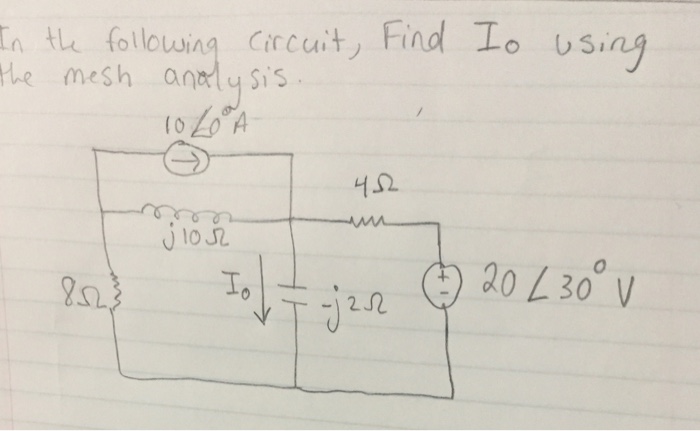 In the following circuit, Find Io using
the mesh analysis.
10∠0°A
4Ω
j10Ω
8Ω
Io
-j2Ω
+
-
20∠30° V